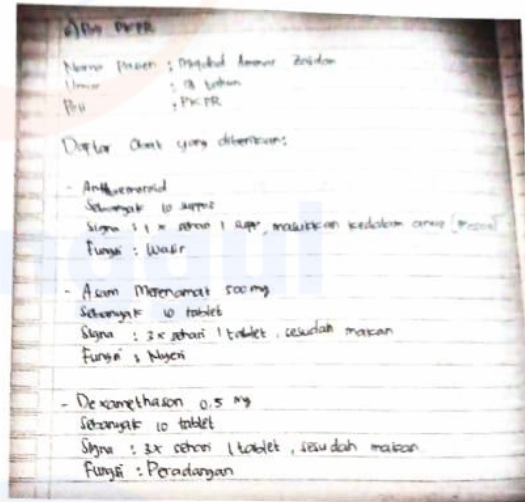 Poli PKPR
Nama Pasien :
Umur : 18 tahun
Poli : PKPR
Daftar Obat yang diberikan:
- Antihemoroid
Sebanyak 10 suppos
Signa : 1 x sehari 1 supp, masukkan kedalam anus
Fungsi : Wasir
- Asam Mefenamat 500 mg
Sebanyak 10 tablet
Signa : 3 x sehari 1 tablet, sesudah makan
Fungsi : Nyeri
- Dexamethason 0.5 mg
Sebanyak 10 tablet
Signa : 3x sehari 1 tablet, sesudah makan
Fungsi : Peradangan
nggul